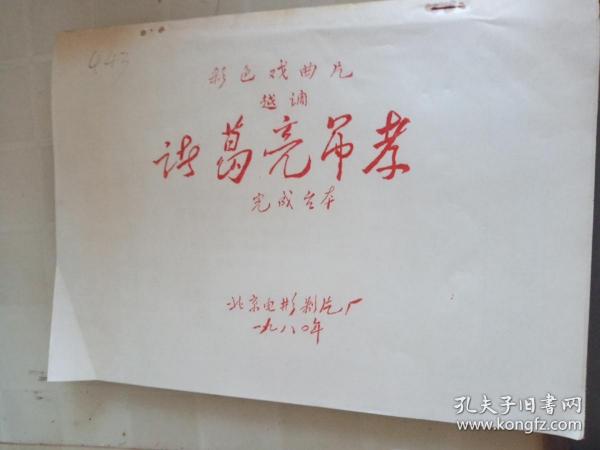 443
彩色戏曲片
越调
诸葛亮吊孝
完成台本
北京电影制片厂
一九八〇年
孔夫子旧书网
www.kongfz.com